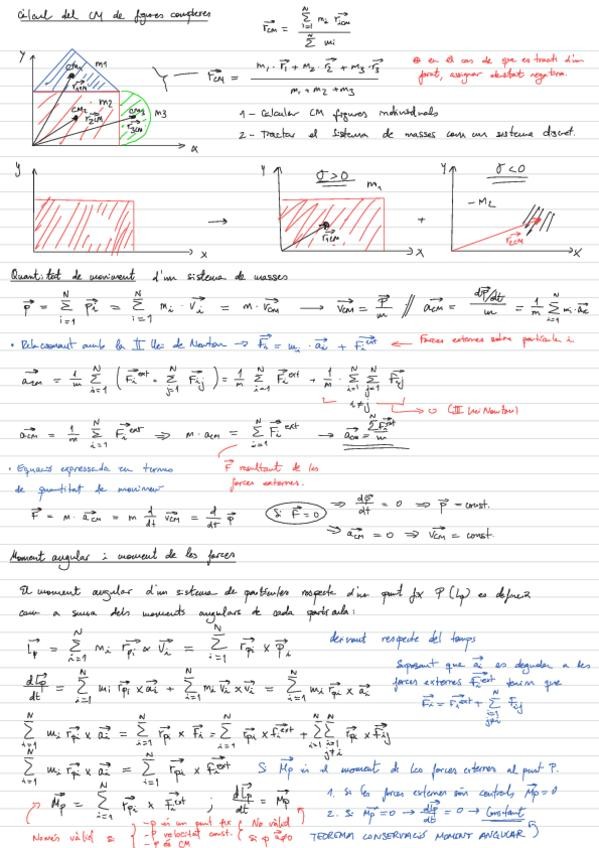 Càlcul del CM de figures complexes
r_CM = Σ_{i=1}^{N} m_i r_iCM / Σ^{N} m_i
y m1 CM1 r1CM m2 CM2 r2CM CM3 r3CM m3 x
r_CM = m1 · r1 + m2 · r2 + m3 · r3 / m1 + m2 + m3
⊗ en el cas de que es tracti d'un forat, assignar densitat negativa.
1 - Calcular CM figures individuals
2 - Tractar el sistema de masses com un sistema discret.
y x → y σ > 0 m1 r1CM x + y σ < 0 - M2 r2CM x
Quantitat de moviment d'un sistema de masses
p = Σ_{i=1}^{N} p_i = Σ_{i=1}^{N} m_i · v_i = m · v_CM → v_CM = p / m // a_CM = dp/dt / m = 1/m Σ_{i=1}^{N} m_i · a_i
• Relacionant amb la II llei de Newton → F_i = m_i · a_i + F_i^ext ← Forces externes sobre partícula i
a_CM = 1/m Σ_{i=1}^{N} (F_i^ext + Σ_{j=1}^{N} F_ij) = 1/m Σ_{i=1}^{N} F_i^ext + 1/m · Σ_{i=1}^{N} Σ_{j=1}^{N} F_ij
i≠j → 0 (III llei Newton)
a_CM = 1/m Σ_{i=1}^{N} F_i^ext ⇒ m · a_CM = Σ_{i=1}^{N} F_i^ext → a_CM = Σ F_i^ext / m
F resultant de les forces externes.
• Equació expressada en termes
de quantitat de moviment
F = m · a_CM = m d/dt v_CM = d/dt p
Si F = 0 ⇒ dp/dt = 0 ⇒ p = const.
⇒ a_CM = 0 ⇒ v_CM = const.
Moment angular i moment de les forces
El moment angular d'un sistema de partícules respecte d'un punt fix P (Lp) es defineix
com a suma dels moments angulars de cada partícula:
L_p = Σ_{i=1}^{N} m_i r_pi × v_i = Σ_{i=1}^{N} r_pi × p_i
derivant respecte del temps
dL_p/dt = Σ_{i=1}^{N} m_i r_pi × a_i + Σ_{i=1}^{N} m_i v_i × v_i = Σ_{i=1}^{N} m_i r_pi × a_i
Suposant que a_i es deguda a les
forces externes F_i^ext tenim que
F_i = F_i^ext + Σ_{j=1, j≠i}^{N} F_ij
Σ_{i=1}^{N} m_i r_pi × a_i = Σ_{i=1}^{N} r_pi × F_i = Σ_{i=1}^{N} r_pi × F_i^ext + Σ_{i=1}^{N} Σ_{j=1, j≠i}^{N} r_pi × F_ij
Σ_{i=1}^{N} m_i r_pi × a_i = Σ_{i=1}^{N} r_pi × F_i^ext
Si M_p és el moment de les forces externes al punt P.
M_p = Σ_{i=1}^{N} r_pi × F_i^ext ; dL_p/dt = M_p
1. Si les forces externes són centrals M_p = 0
2. Si M_p = 0 → dL_p/dt = 0 → Constant
Només vàlid si { - p és un punt fix
- p velocitat const.
- p és CM
No vàlid si p a ≠ 0
TEOREMA CONSERVACIÓ MOMENT ANGULAR